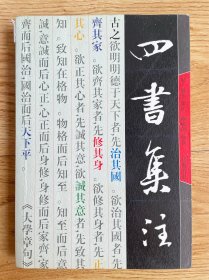 四書集注
古之欲明明德于天下者,先治其國。欲治其國者,先
齊其家。欲齊其家者,先修其身。欲修其身者,先正
其心。欲正其心者,先誠其意。欲誠其意者,先致其
知。致知在格物。物格而后知至。知至而后意
誠,意誠而后心正,心正而后身修,身修而后家齊,家
齊而后國治,國治而后天下平。
《大學章句》